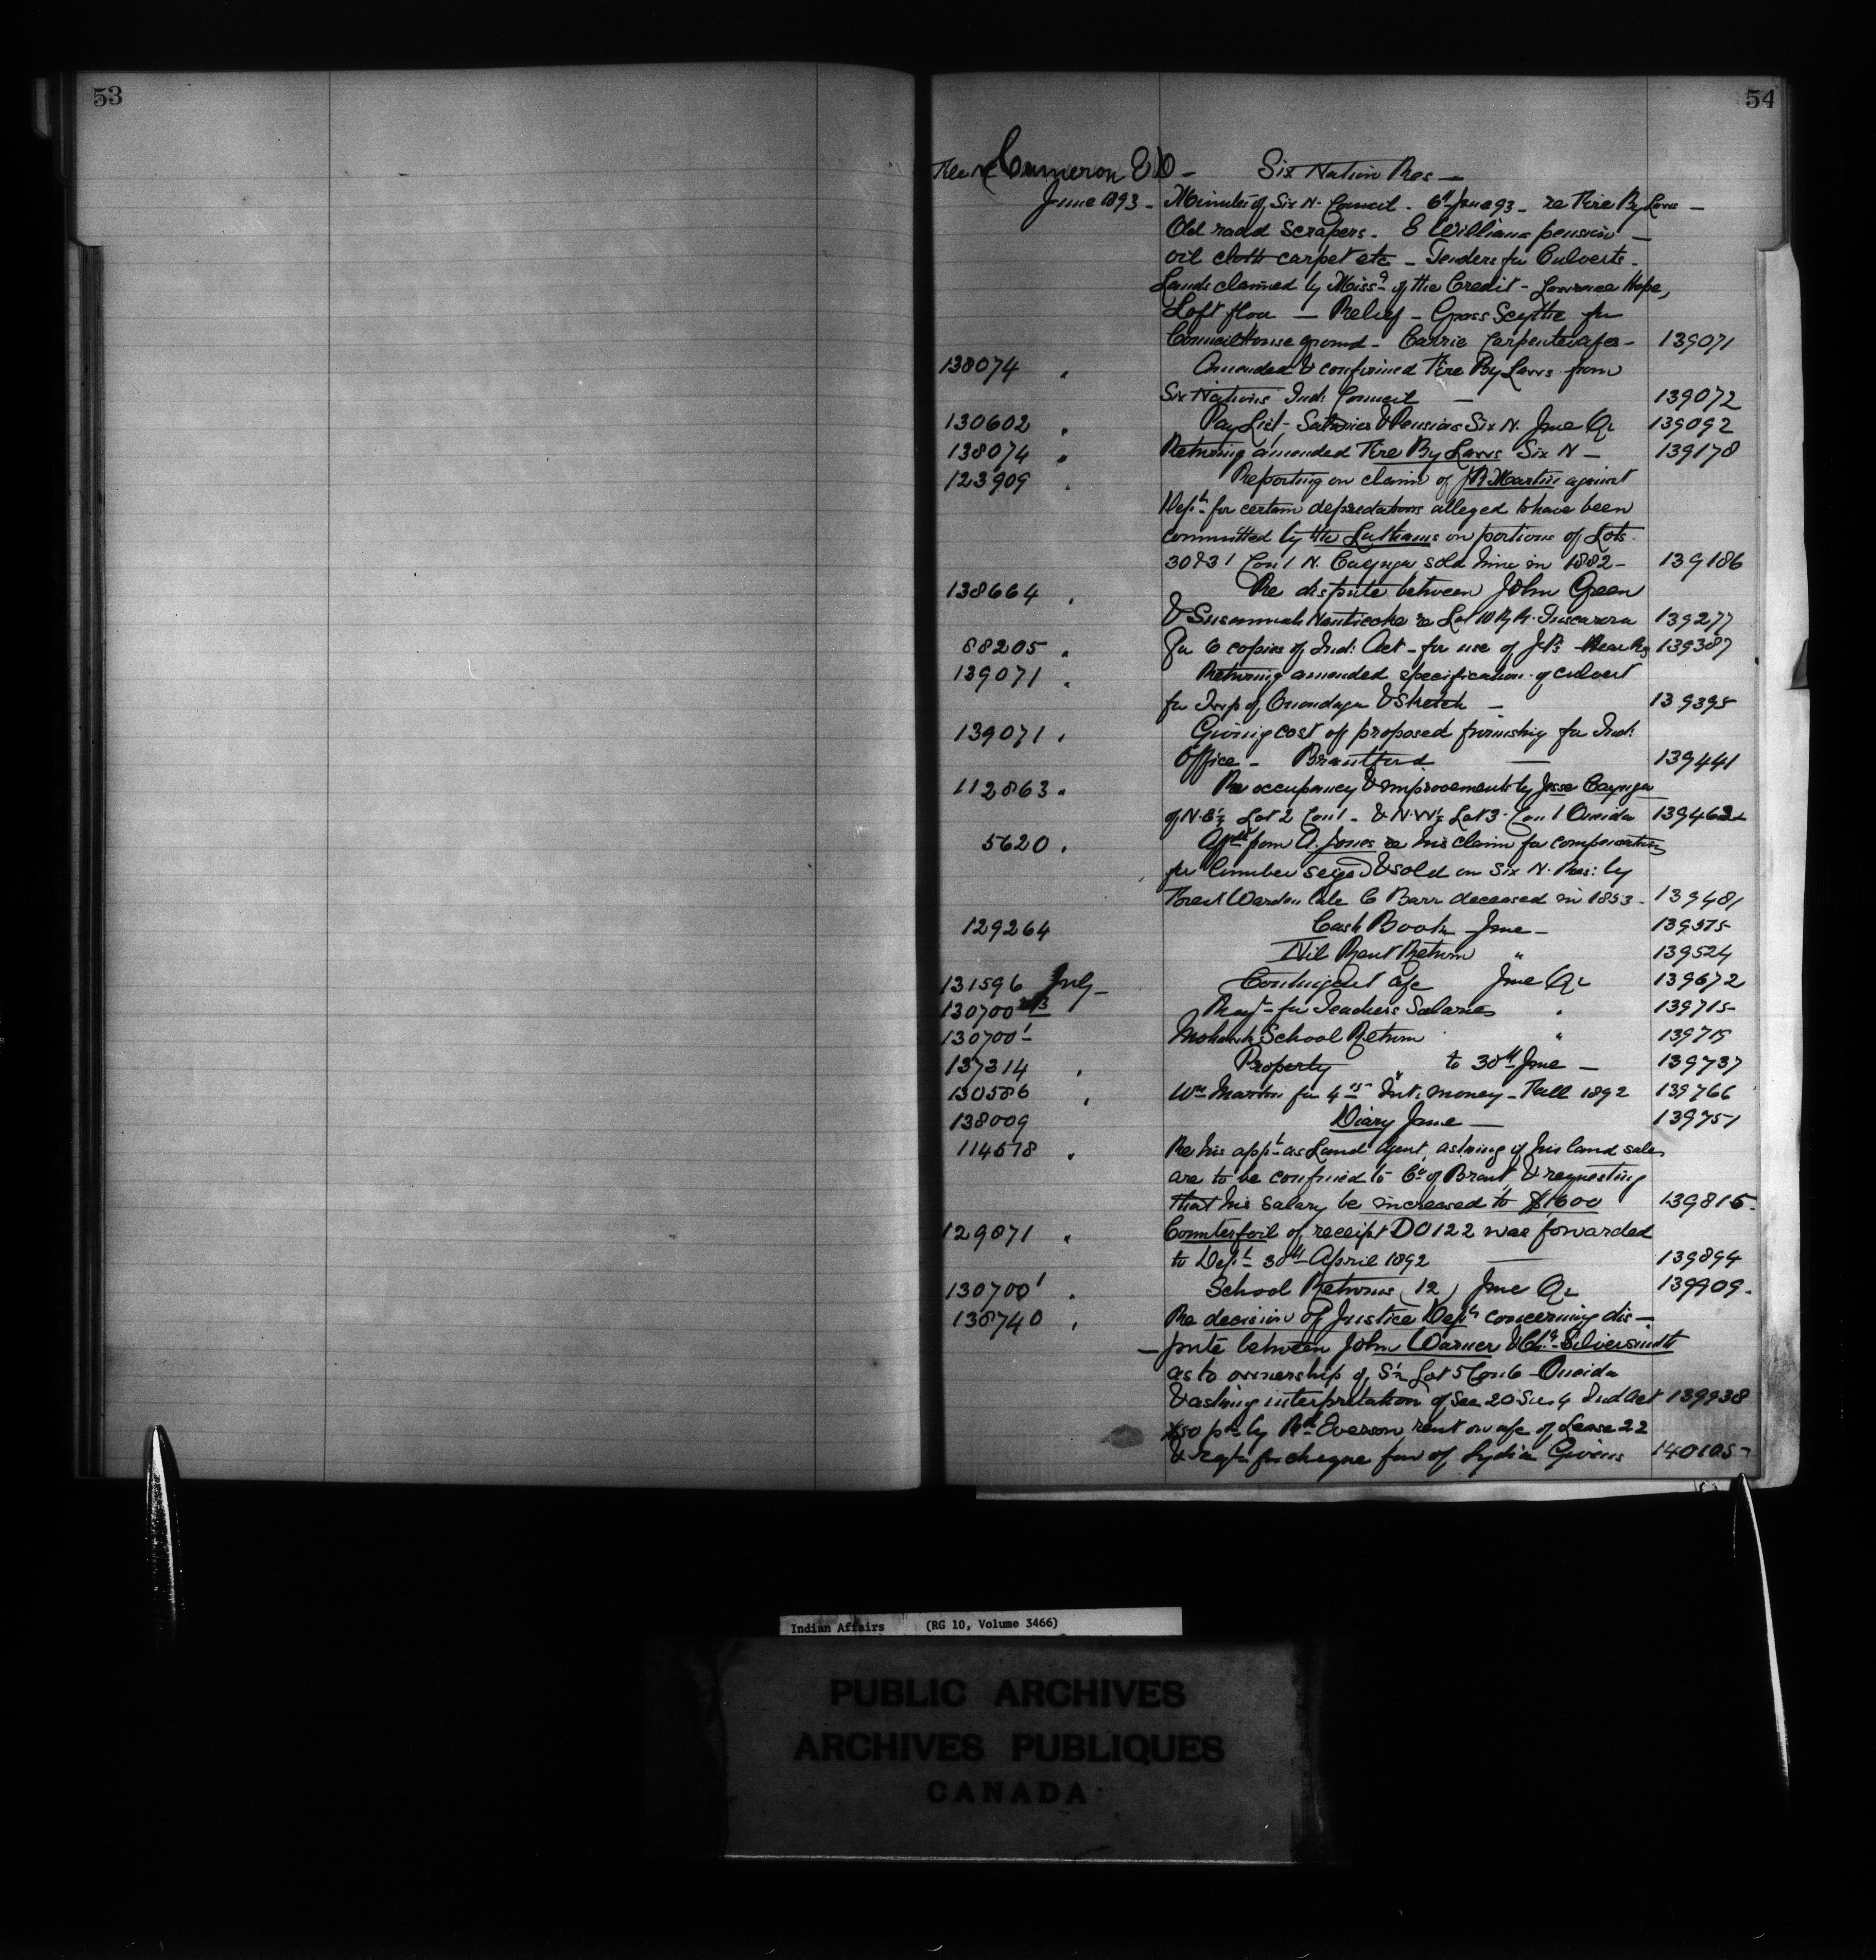 53
54
Cameron E D - Six Nation Res -
June 1893 - Minutes of Six N. Council - 6th June 93 - re Fire By Laws -
Old road scrapers - E Williams pension -
oil cloth carpet etc - Tenders for Culverts -
Lands claimed by Miss.s of the Credit - Lawrence Hope,
Loft floor - Relief - Grass Scythe for
Council House ground - Carrie Carpenter 139071
138074 " Amended & confirmed Fire By Laws from
Six Nations Ind: Council - 139072
130602 " Pay List - Salaries & Pensions Six N. June Qr 139092
138074 " Returning amended Fire By Laws Six N - 139178
123909 " Reporting on claim of JR Martin against
Dept for certain depredations alleged to have been
committed by the Lathams on portions of Lots
30 & 31 Con 1 N. Cayuga sold him in 1882 - 139186
138664 " Re dispute between John Green
& Susannah Nanticoke re Lot 10 R. Tuscarora 139277
88205 " For 6 copies of Ind: Act - for use of J.P's 139387
139071 " Returning amended specification of culvert
for Twp of Onondaga & Sketch - 139395
139071 " Giving cost of proposed furnishing for Ind:
Office - Brantford — 139441
112863 " Re occupancy & improvements by Jesse Cayuga
of N.E½ Lot 2 Con 1 - & N.W½ Lot 3 Con 1 Oneida 139462
5620 " from A. Jones re his claim for compensation
for lumber seized & sold on Six N. Res: by
Forest Warden late C Barr deceased in 1853 - 139481
129264 Cash Book June - 139575
Nil Rent Return " 139524
131596 July - Contingent a/c June Qr 139672
130700 2/3 Reqt for Teachers Salaries " 139715
130700 1 Mohawk School Return " 139719
137314 " Property " to 30th June - 139737
130586 " Wm Martin for Int. money - Fall 1892 139766
138009 Diary June — 139751
114578 " Re his appt as Land Agent, asking if his land sales
are to be confined to Co of Brant, & requesting
that his salary be increased to $1600 139815
129071 " Counterfoil of receipt DO122 was forwarded
to Dept 30th April 1892 — 139894
130700 1 " School Returns (12) June Qr 139909
138740 " Re decision of Justice Dept concerning dis-
-pute between John Warner & Silversmith
as to ownership of S½ Lot 5 Con 6 - Oneida
& asking interpretation of Sec 20 Su 4 Ind Act 139938
$50 pd by Everson rent on a/c of Lease 22
& reqt for cheque fav of Lydia Givens 140105
Indian Affairs (RG 10, Volume 3466)
PUBLIC ARCHIVES
ARCHIVES PUBLIQUES
CANADA